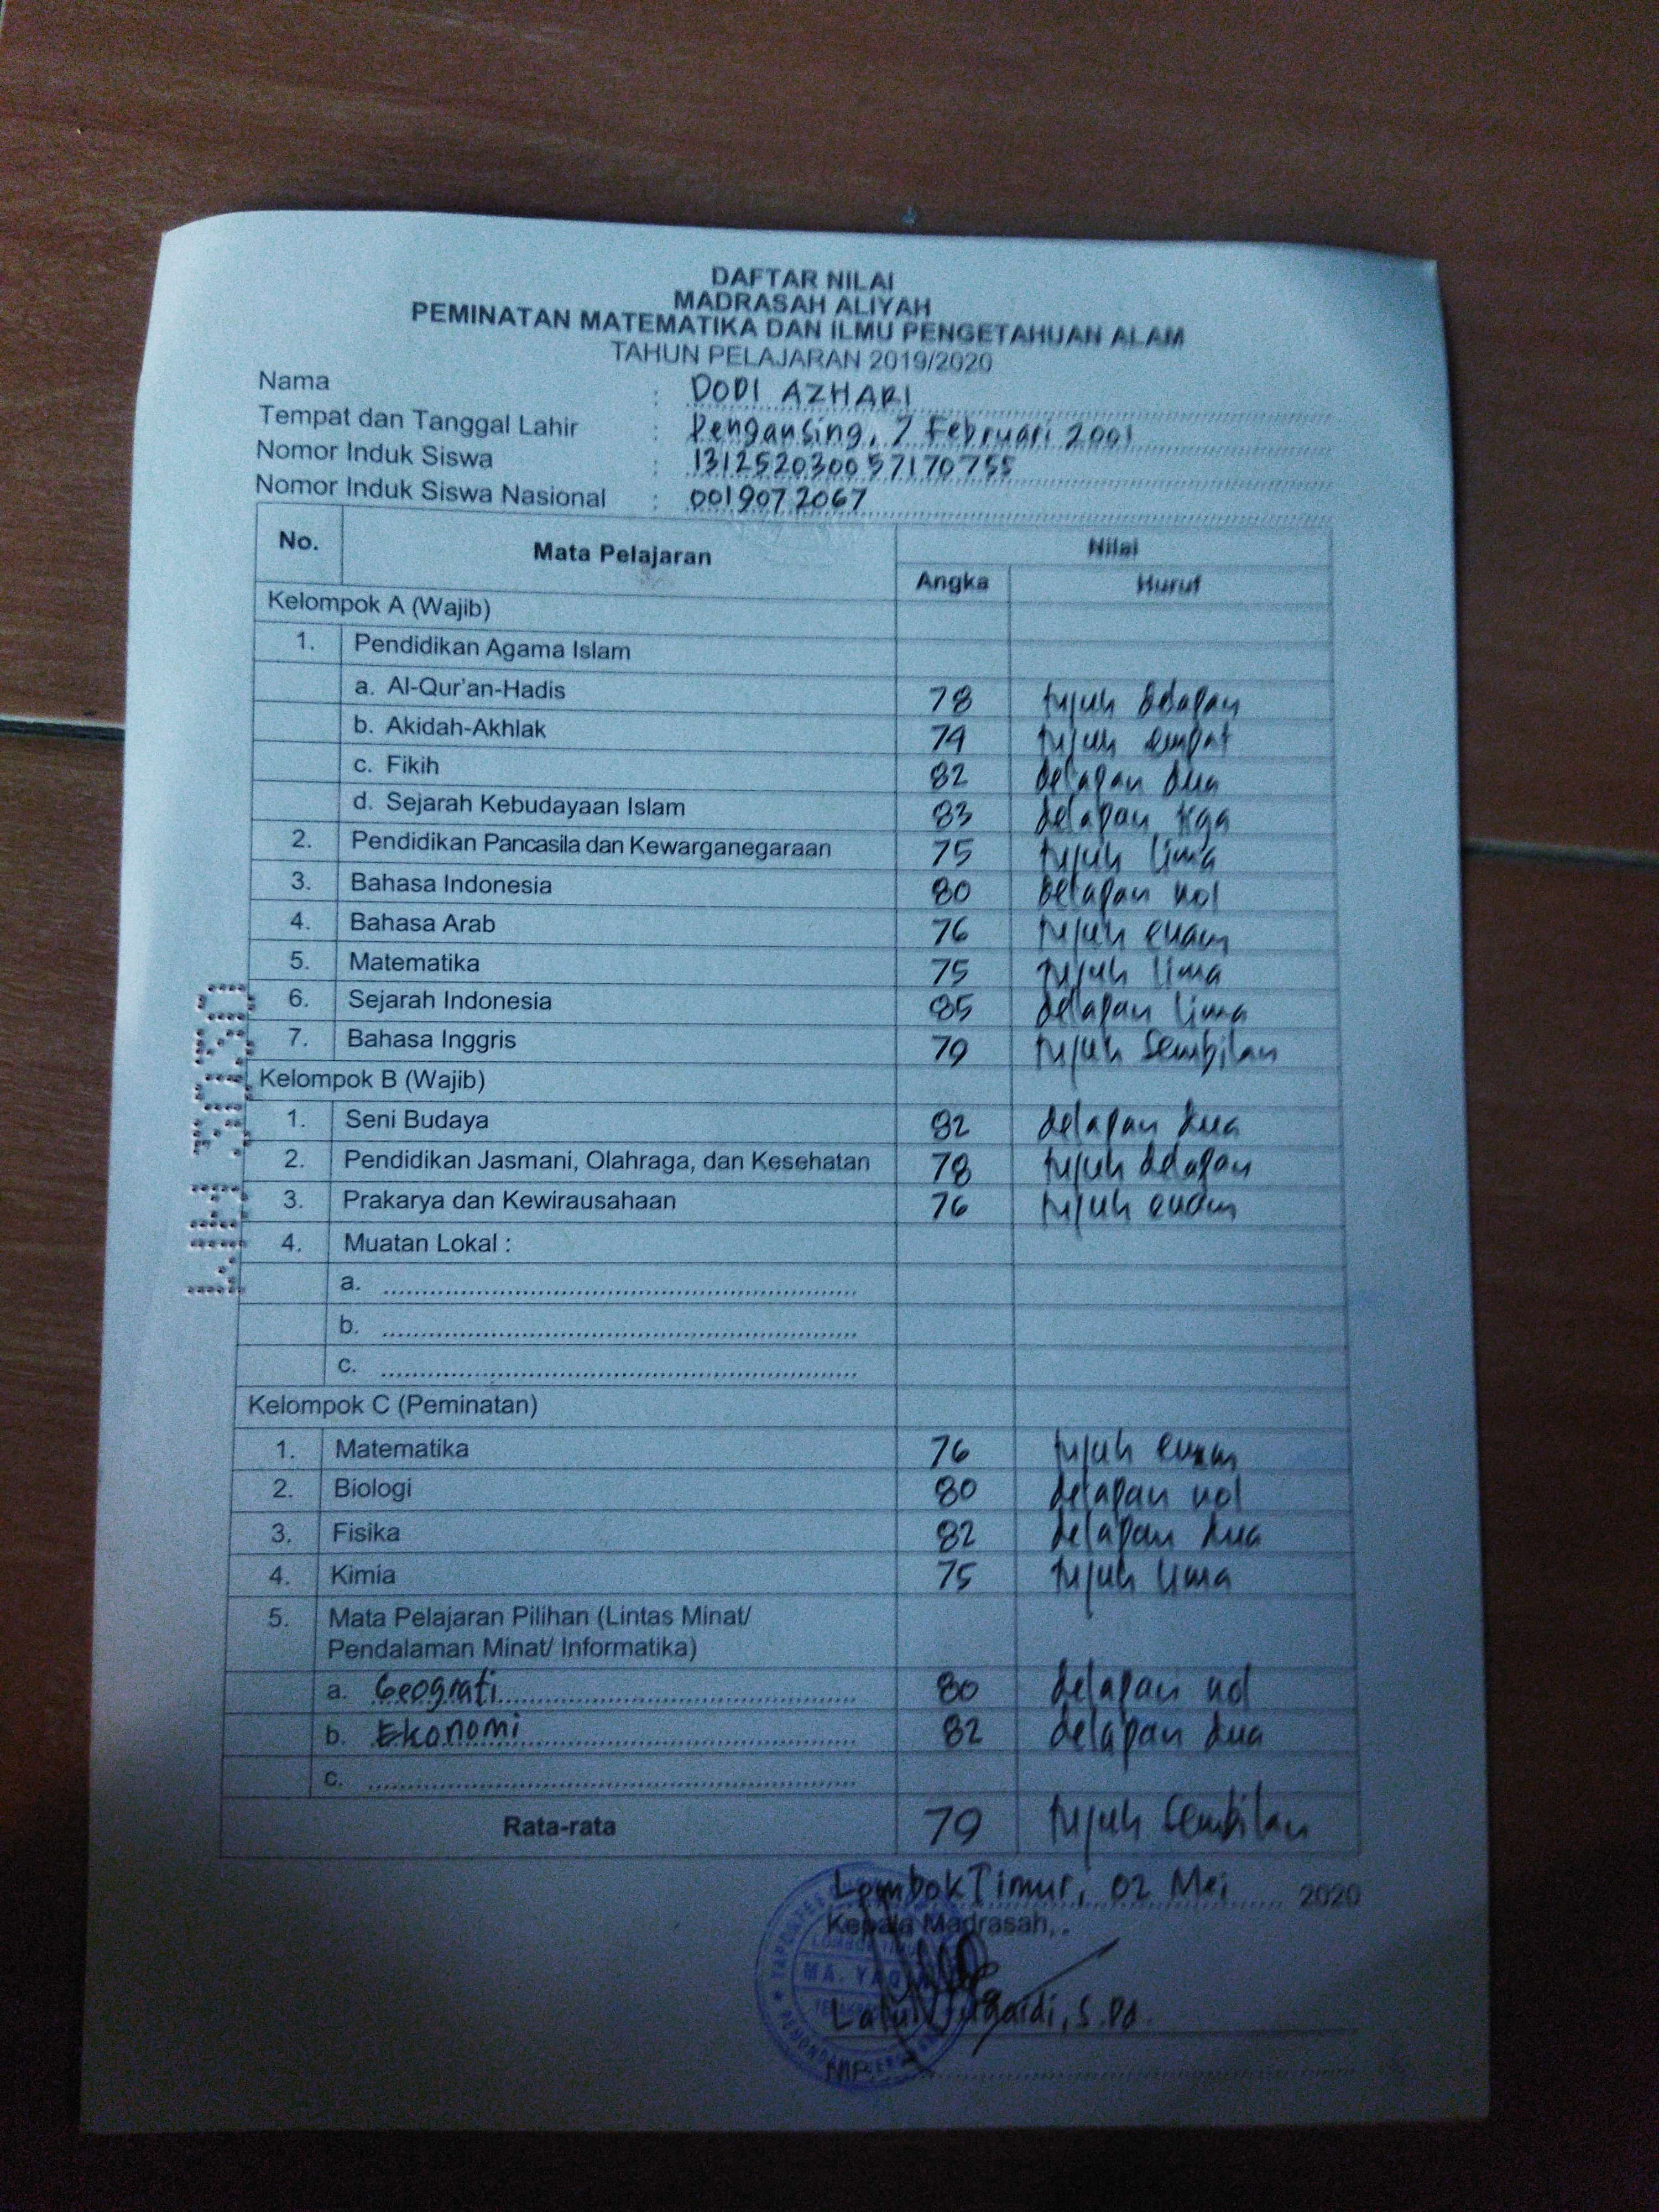 DAFTAR NILAI
MADRASAH ALIYAH
PEMINATAN MATEMATIKA DAN ILMU PENGETAHUAN ALAM
TAHUN PELAJARAN 2019/2020
Nama : DODI AZHARI
Tempat dan Tanggal Lahir : Pengansing, 7 Februari 2001
Nomor Induk Siswa : 131252030057170755
Nomor Induk Siswa Nasional : 0019072067
No. Mata Pelajaran Nilai
Angka Huruf
Kelompok A (Wajib)
1. Pendidikan Agama Islam
a. Al-Qur'an-Hadis 78 tujuh delapan
b. Akidah-Akhlak 74 tujuh empat
c. Fikih 82 delapan dua
d. Sejarah Kebudayaan Islam 83 delapan tiga
2. Pendidikan Pancasila dan Kewarganegaraan 75 tujuh lima
3. Bahasa Indonesia 80 delapan nol
4. Bahasa Arab 76 tujuh enam
5. Matematika 75 tujuh lima
6. Sejarah Indonesia 85 delapan lima
7. Bahasa Inggris 79 tujuh sembilan
Kelompok B (Wajib)
1. Seni Budaya 82 delapan dua
2. Pendidikan Jasmani, Olahraga, dan Kesehatan 78 tujuh delapan
3. Prakarya dan Kewirausahaan 76 tujuh enam
4. Muatan Lokal :
a.
b.
c.
Kelompok C (Peminatan)
1. Matematika 76 tujuh enam
2. Biologi 80 delapan nol
3. Fisika 82 delapan dua
4. Kimia 75 tujuh lima
5. Mata Pelajaran Pilihan (Lintas Minat/
Pendalaman Minat/ Informatika)
a. Geografi 80 delapan nol
b. Ekonomi 82 delapan dua
c.
Rata-rata 79 tujuh sembilan
Lombok Timur, 02 Mei 2020
Kepala Madrasah,
S.Pd.
NIP.
MA.